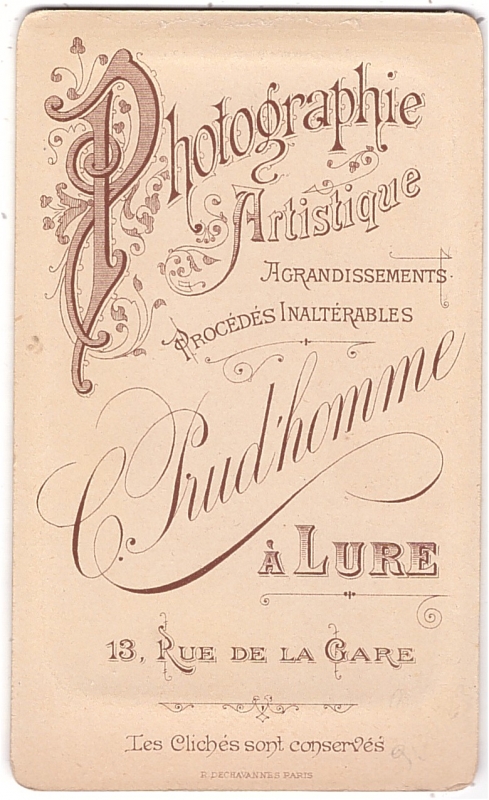 Photographie
Artistique
AGRANDISSEMENTS
PROCÉDÉS INALTÉRABLES
C. Prud'homme
À LURE
13, RUE DE LA GARE
Les Clichés sont conservés
R. DECHAVANNES PARIS